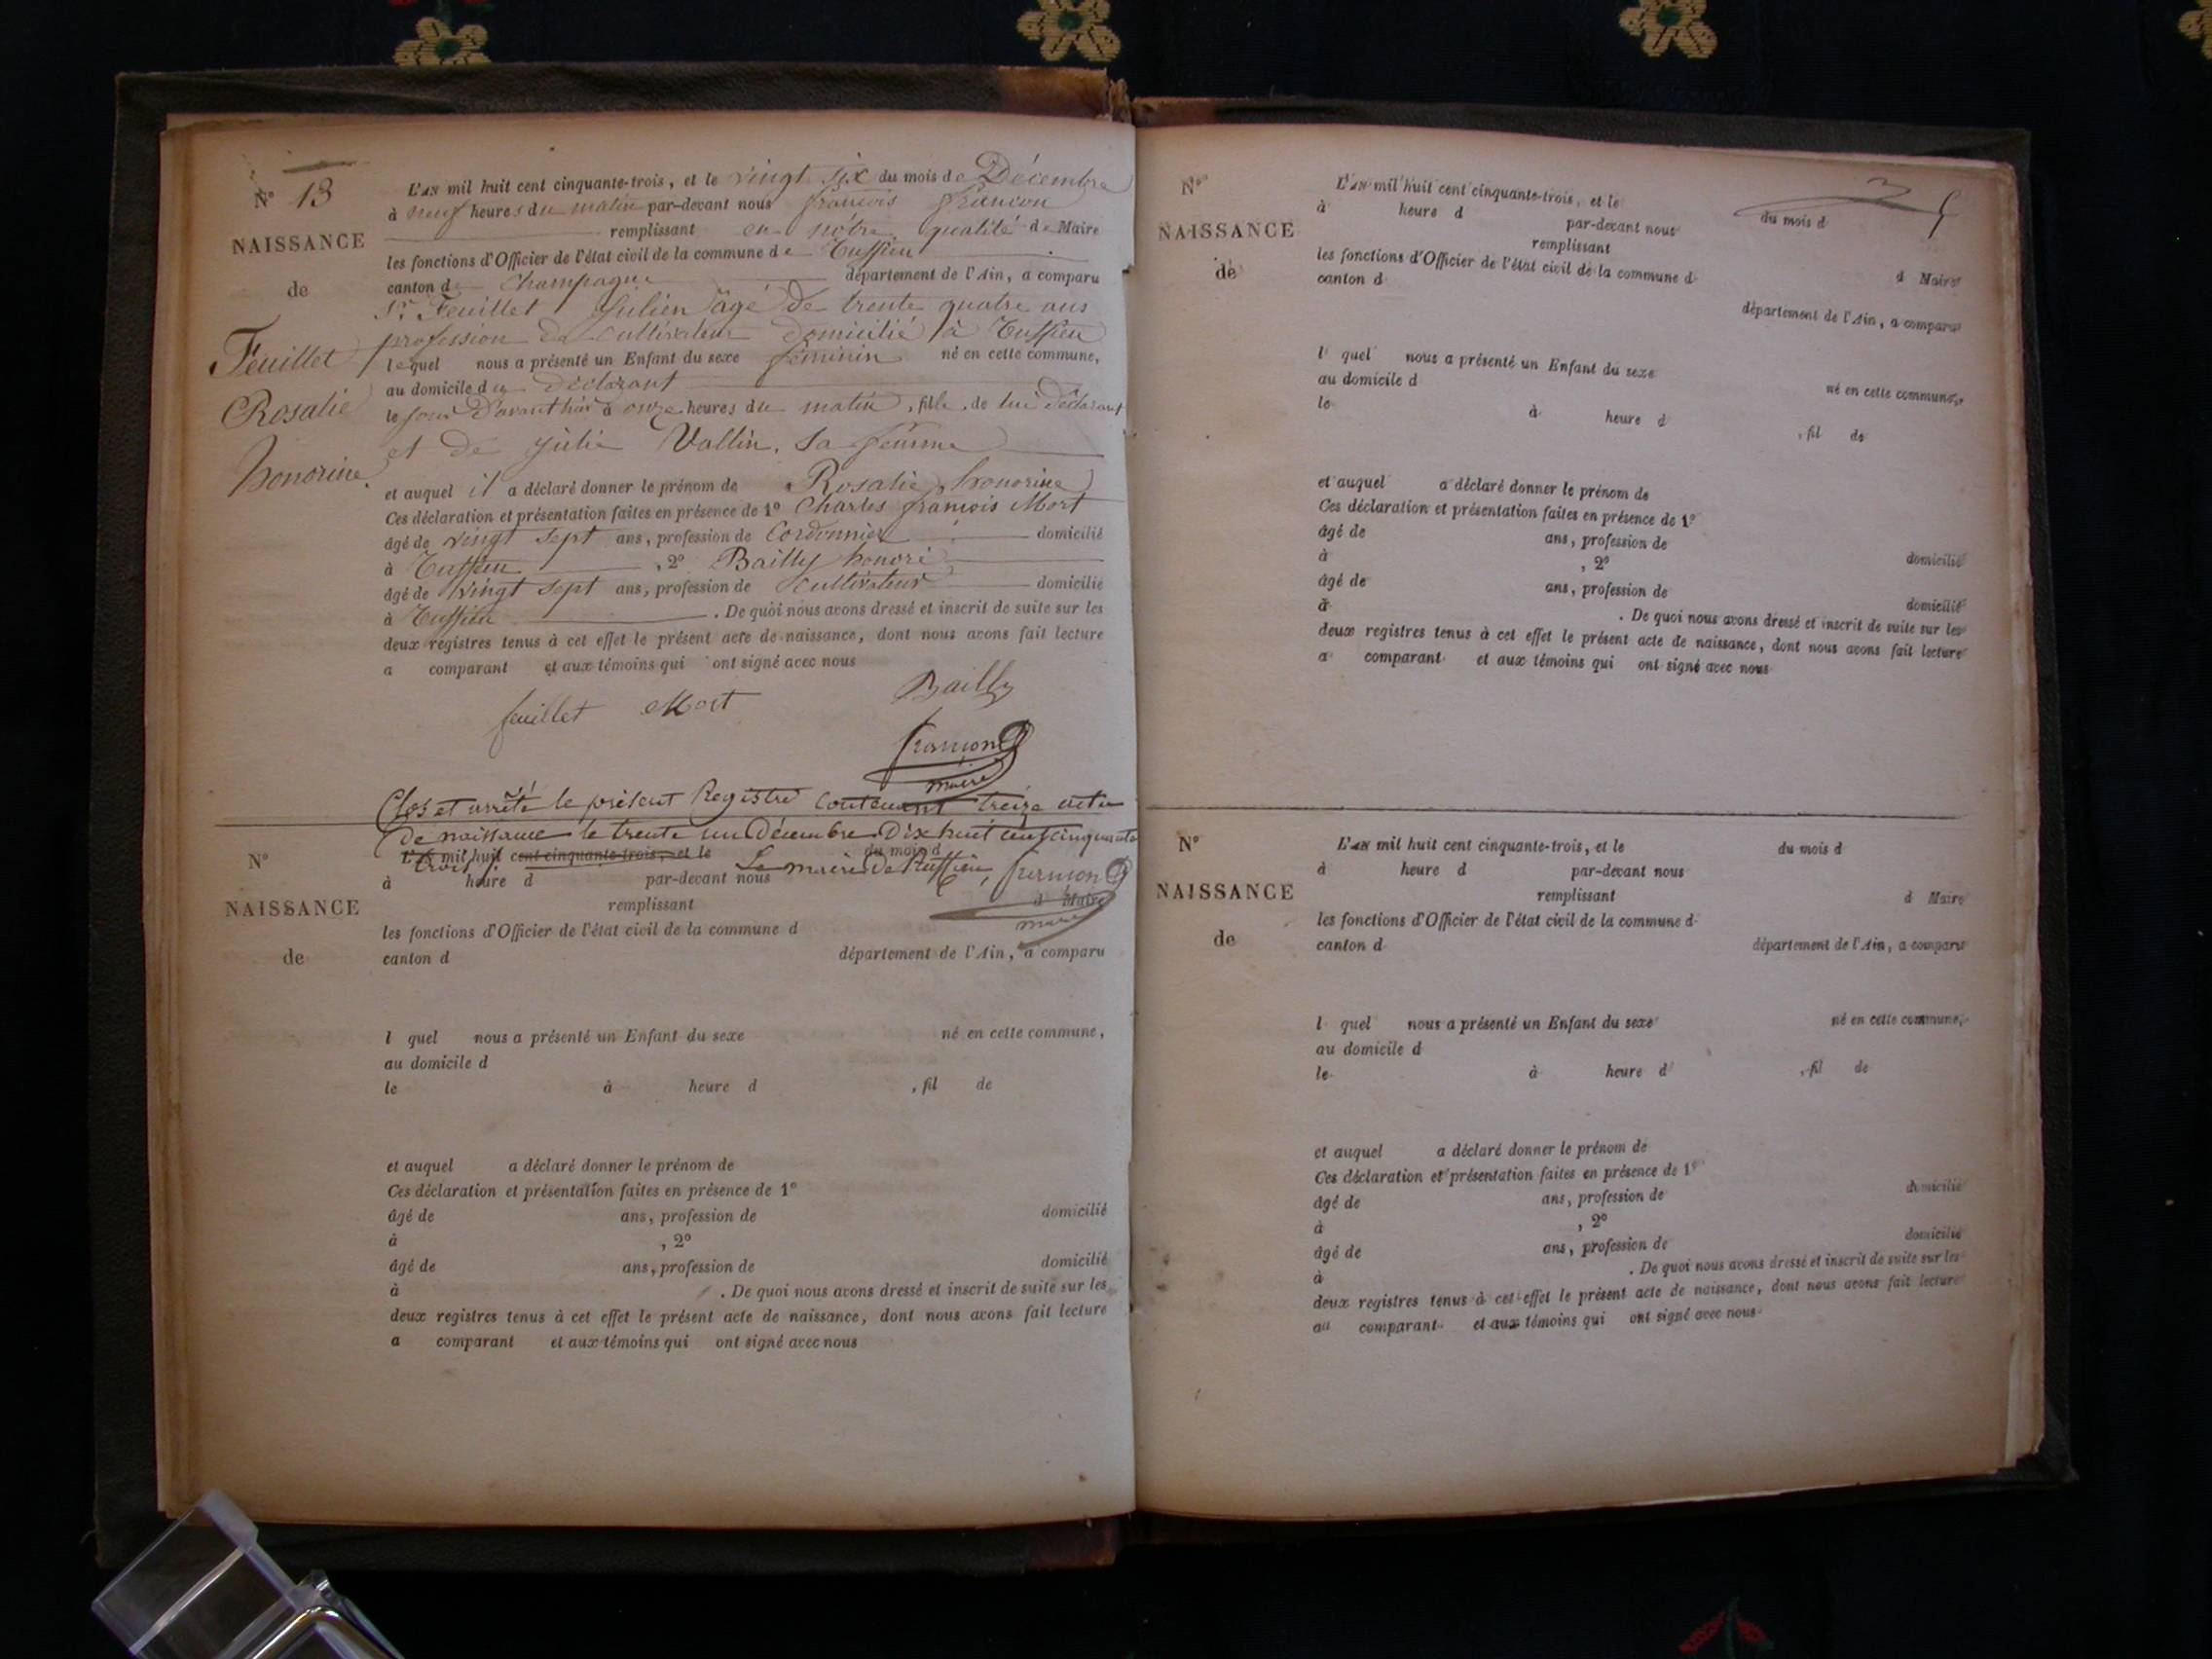 N° 13
NAISSANCE
de
Feuillet
Rosalie
honorine.
L'AN mil huit cent cinquante-trois, et le vingt six du mois de Décembre
à neuf heures du matin par-devant nous françois françon
remplissant en nôtre qualité de Maire
les fonctions d'Officier de l'état civil de la commune de Ruffieu
canton de Champagne département de l'Ain, a comparu
Sr. Feuillet Julien âgé de trente quatre ans
profession de cultivateur domicilié à Ruffieu
lequel nous a présenté un Enfant du sexe féminin né en cette commune,
au domicile du déclarant
le jour d'avant hier à onze heures du matin, fille de lui déclarant
et de julie Vallin, sa femme
et auquel il a déclaré donner le prénom de Rosalie, honorine
Ces déclaration et présentation faites en présence de 1° Charles françois Mort
âgé de vingt sept ans, profession de Cordonnier domicilié
à Ruffieu , 2° Bailly honoré
âgé de vingt sept ans, profession de cultivateur domicilié
à Ruffieu . De quoi nous avons dressé et inscrit de suite sur les
deux registres tenus à cet effet le présent acte de naissance, dont nous avons fait lecture
a comparant et aux témoins qui ont signé avec nous
feuillet Mort Bailly
françon
maire
Clos et arrêté le présent Registre contenant treize actes
de naissance le trente un Décembre Dix huit cent cinquante
trois /. Le maire de Ruffieu, françon
maire
N°
NAISSANCE
de
L'AN mil huit cent cinquante-trois, et le du mois d
à heure d par-devant nous
remplissant d Maire
les fonctions d'Officier de l'état civil de la commune d
canton d département de l'Ain, a comparu
l quel nous a présenté un Enfant du sexe né en cette commune,
au domicile d
le à heure d , fil de
et auquel a déclaré donner le prénom de
Ces déclaration et présentation faites en présence de 1°
âgé de ans, profession de domicilié
à , 2°
âgé de ans, profession de domicilié
à . De quoi nous avons dressé et inscrit de suite sur les
deux registres tenus à cet effet le présent acte de naissance, dont nous avons fait lecture
a comparant et aux témoins qui ont signé avec nous
N°
NAISSANCE
de
L'AN mil huit cent cinquante-trois, et le du mois d
à heure d par-devant nous
remplissant d Maire
les fonctions d'Officier de l'état civil de la commune d
canton d département de l'Ain, a comparu
l quel nous a présenté un Enfant du sexe né en cette commune,
au domicile d
le à heure d , fil de
et auquel a déclaré donner le prénom de
Ces déclaration et présentation faites en présence de 1°
âgé de ans, profession de domicilié
à , 2°
âgé de ans, profession de domicilié
à . De quoi nous avons dressé et inscrit de suite sur les
deux registres tenus à cet effet le présent acte de naissance, dont nous avons fait lecture
a comparant et aux témoins qui ont signé avec nous
N°
NAISSANCE
de
L'AN mil huit cent cinquante-trois, et le du mois d
à heure d par-devant nous
remplissant d Maire
les fonctions d'Officier de l'état civil de la commune d
canton d département de l'Ain, a comparu
l quel nous a présenté un Enfant du sexe né en cette commune,
au domicile d
le à heure d , fil de
et auquel a déclaré donner le prénom de
Ces déclaration et présentation faites en présence de 1°
âgé de ans, profession de domicilié
à , 2°
âgé de ans, profession de domicilié
à . De quoi nous avons dressé et inscrit de suite sur les
deux registres tenus à cet effet le présent acte de naissance, dont nous avons fait lecture
au comparant et aux témoins qui ont signé avec nous